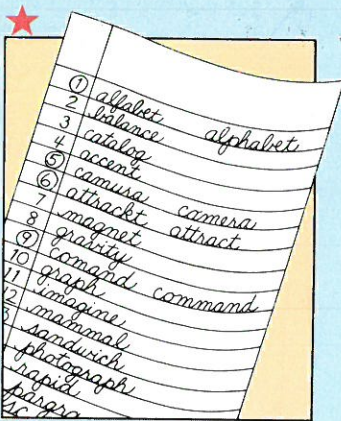 1 alfabet alphabet
2 balance
3 catalog
4 accent
5 camusa camera
6 attrackt attract
7 magnet
8 gravity
9 comand command
10 graph
11 imagine
12 mammal
sandwich
photograph
rapid